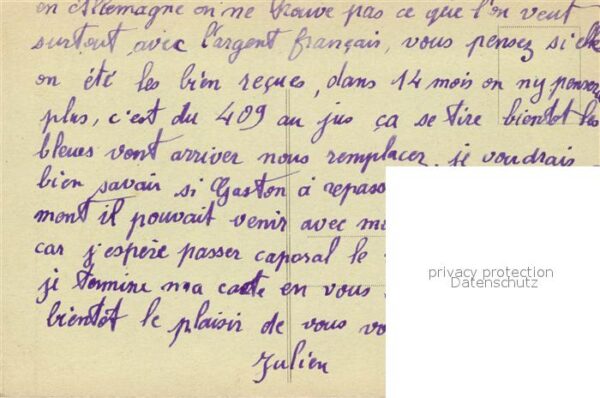 en Allemagne on ne trouve pas ce que l'on veut
surtout avec l'argent français, vous pensez si elle
on été les bien reçues, dans 14 mois on ny pensera
plus, c'est du 409 au jus ça se tire bientot les
bleues vont arriver nous remplacer, je voudrais
bien savoir si Gaston à repass
ment il pouvait venir avec m
car j'espère passer caporal le
je termine ma carte en vous
bientôt le plaisir de vous vo
Julien
privacy protection
Datenschutz